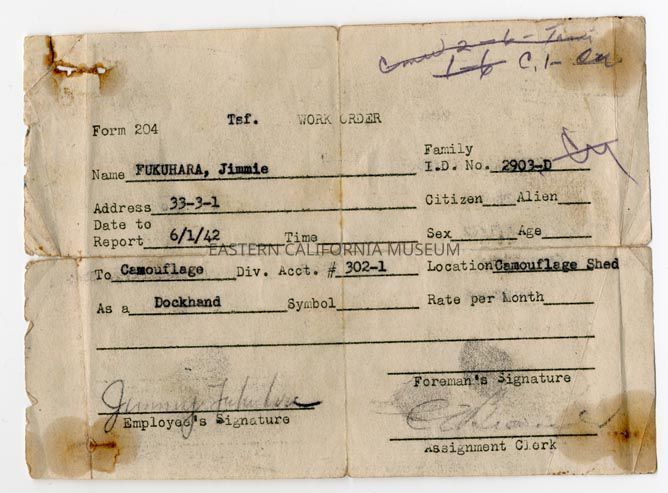 1-6 C.1-
Tsf. WORK ORDER
Form 204
Family
Name FUKUHARA, Jimmie I.D. No. 2903-D
Address 33-3-1 Citizen Alien
Date to
Report 6/1/42 Time Sex Age
EASTERN CALIFORNIA MUSEUM
To Camouflage Div. Acct. # 302-1 Location Camouflage Shed
As a Dockhand Symbol Rate per Month
Foreman's Signature
Employee's Signature
Assignment Clerk